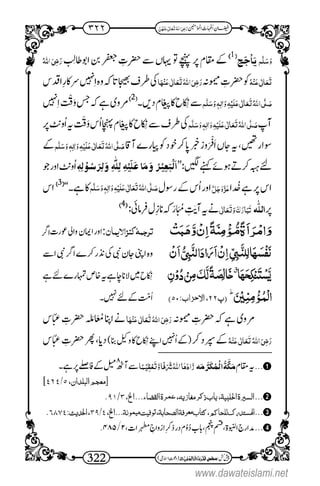 فیضانِ امہات المؤمنین رَضِیَ اللہُ تَعَالٰی عَنْہُنَّ
۳۲۲
وَسَلَّم یَأجَج (1) کے مقام پر پہنچے تو یہاں سے حضرتِ جعفر بن ابوطالب رَضِیَ اللہُ
تَعَالٰی عَنْہُ کو حضرتِ میمونہ رَضِیَ اللہُ تَعَالٰی عَنْہَا کی طرف بھیجا تاکہ وہ انہیں سرکارِ اقدس
صَلَّی اللہُ تَعَالٰی عَلَیْہِ وَاٰلِہٖ وَسَلَّم کی جانب سے نکاح کا پیغام دیں۔ (۲) مروی ہے کہ جس وقت انہیں
آپ صَلَّی اللہُ تَعَالٰی عَلَیْہِ وَاٰلِہٖ وَسَلَّم کی طرف سے نکاح کا پیغام پہنچا اُس وَقْت یہ اُونٹ پر
سوار تھیں، یہ جاں اَفروز خبر پا کر خود کو پیارے آقا صَلَّی اللہُ تَعَالٰی عَلَیْہِ وَاٰلِہٖ وَسَلَّم کے
لئے ہبہ کرتے ہوئے کہنے لگیں: ”اَلْبَعِیْرُ وَمَا عَلَیْہِ لِلّٰہِ وَلِرَسُوْلِہٖ اونٹ اور جو
اس پر ہے خدا عَزَّوَجَلَّ اور اُس کے رسول صَلَّی اللہُ تَعَالٰی عَلَیْہِ وَاٰلِہٖ وَسَلَّم کا ہے۔“ (3) اس
پر اللہ تَبَارَکَ وَتَعَالٰی نے یہ آیَتِ مُبَارَکہ نازِل فرمائی: (۹)
وَامْرَاَةً مُّؤْمِنَةً اِنْ وَّهَبَتْ
نَفْسَهَا لِلنَّبِیِّ اِنْ اَرَادَ النَّبِیُّ اَنْ
یَّسْتَنْكِحَهَاۗ خَالِصَةً لَّكَ مِنْ دُوْنِ
الْمُؤْمِنِیْنَ (پ۲۲، الاحزاب: ۵۰)
ترجمۂ کنزالایمان: اور ایمان والی عورت اگر
وہ اپنی جان نبی کی نذر کرے اگر نبی اسے
نکاح میں لانا چاہے یہ خاص تمہارے لئے ہے
اُمّت کے لئے نہیں۔
مروی ہے کہ حضرتِ میمونہ رَضِیَ اللہُ تَعَالٰی عَنْہَا نے اپنا مُعاملہ حضرتِ عبّاس
رَضِیَ اللہُ تَعَالٰی عَنْہُ کے سپرد کر (کے انہیں اپنے نکاح کا وکیل بنا) دیا، پھر حضرتِ عبّاس
1… یہ مقام مَکَّۃُ الْمُکَرَّمَہ زَادَھَا اللہُ شَرَفًا وَّتَعْظِیْمًا سے آٹھ میل کے فاصلے پر ہے۔
[معجم البلدان، ۵/۴۲۴]
2… السیرۃ الحلبیۃ، باب ذکر مغازیہ، عمرۃ القضاء... الخ، ۳/۹۱.
3… المستدرک للحاکم، کتاب معرفۃ الصحابۃ، تزویج میمونۃ... الخ، ۵/۳۹، الحدیث: ۶۸۷۴.
مدارج النبوۃ، قسم پنجم، باب دوم در ذکر ازواج مطہرات، ۲/۴۸۵.
322
www.dawateislami.net